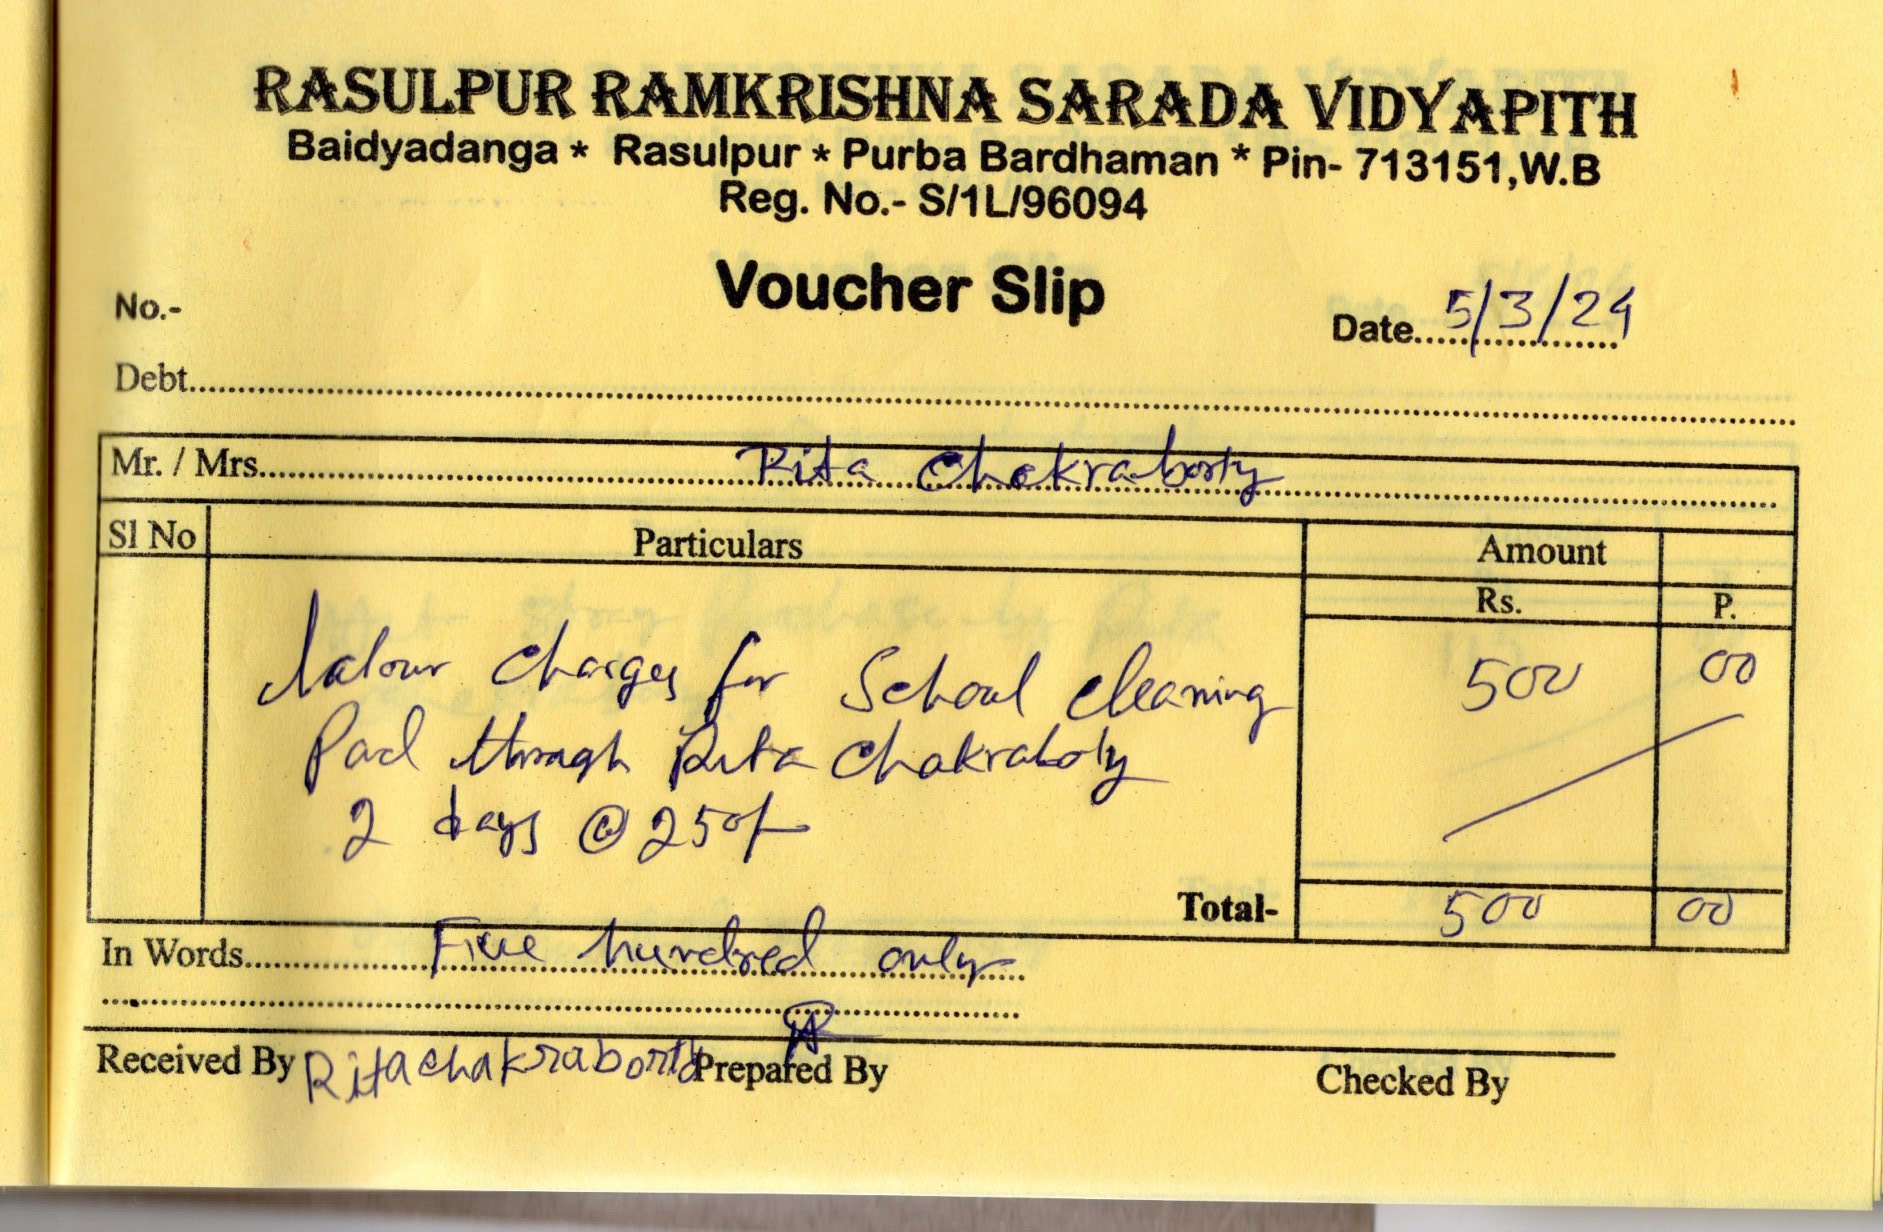 RASULPUR RAMKRISHNA SARADA VIDYAPITH
Baidyadanga * Rasulpur * Purba Bardhaman * Pin- 713151,W.B
Reg. No.- S/1L/96094
Voucher Slip
No.-
Date....5/3/24
Debt
Mr. / Mrs. Rita Chakraborty
Sl No Particulars Amount
Rs. P.
Labour Charges for School Cleaning 500 00
Paid through Rita Chakraboty
2 days @ 250/-
Total- 500 00
In Words Five hundred only
Received By Rita chakraborty Prepared By Checked By